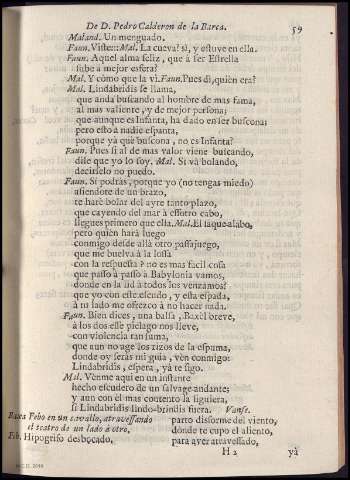 De D. Pedro Calderon de la Barca. 59
Maland. Un menguado.
Faun. Viste:::Mal. La cueva? sì, y estuve en ella.
Faun. Aquel alma feliz, que à ser Estrella
sube à mejor esfera?
Mal. Y còmo que la vì. Faun. Pues dì, quièn era?
Mal. Lindabridis se llama,
que anda buscando al hombre de mas fama,
al mas valiente, y de mejor persona;
que aunque es Infanta, ha dado en ser buscona:
pero esto à nadie espanta,
porque yà què buscona, no es Infanta?
Faun. Pues si al de mas valor viene buscando,
dile que yo lo soy. Mal. Si và bolando,
decirselo no puedo.
Faun. Sì podràs, porque yo (no tengas miedo)
asiendote de un brazo,
te harè bolar del ayre tanto plazo,
que cayendo del mar à essotro cabo,
llegues primero que ella. Mal. El taque alabo;
pero quièn harà luego
conmigo desde allà otro passajuego,
que me buelva à la losa
con la respuesta? no es mas facil cosa
que passo à passo à Babylonia vamos,
donde en la lid à todos los venzamos?
que yo con este escudo, y esta espada,
à tu lado me ofrezco à no hacer nada.
Faun. Bien dices, una balsa, Baxèl breve,
à los dos esse pielago nos lleve,
con violencia tan suma,
que aun no aje los rizos de la espuma,
donde oy seràs mi guia, vèn conmigo:
Lindabridis, espera, yà te sigo.
Mal. Venme aqui en un instante
hecho escudero de un salvage andante;
y aun con el mas contento la siguiera,
si Lindabridis lindo-brindis fuera. Vanse.
Passa Febo en un cavallo, atravessando
el teatro de un lado à otro.
Feb. Hipogrifo desbocado,
parto disforme del viento,
donde te cupo el aliento,
para aver atravessado,
H 2 yà